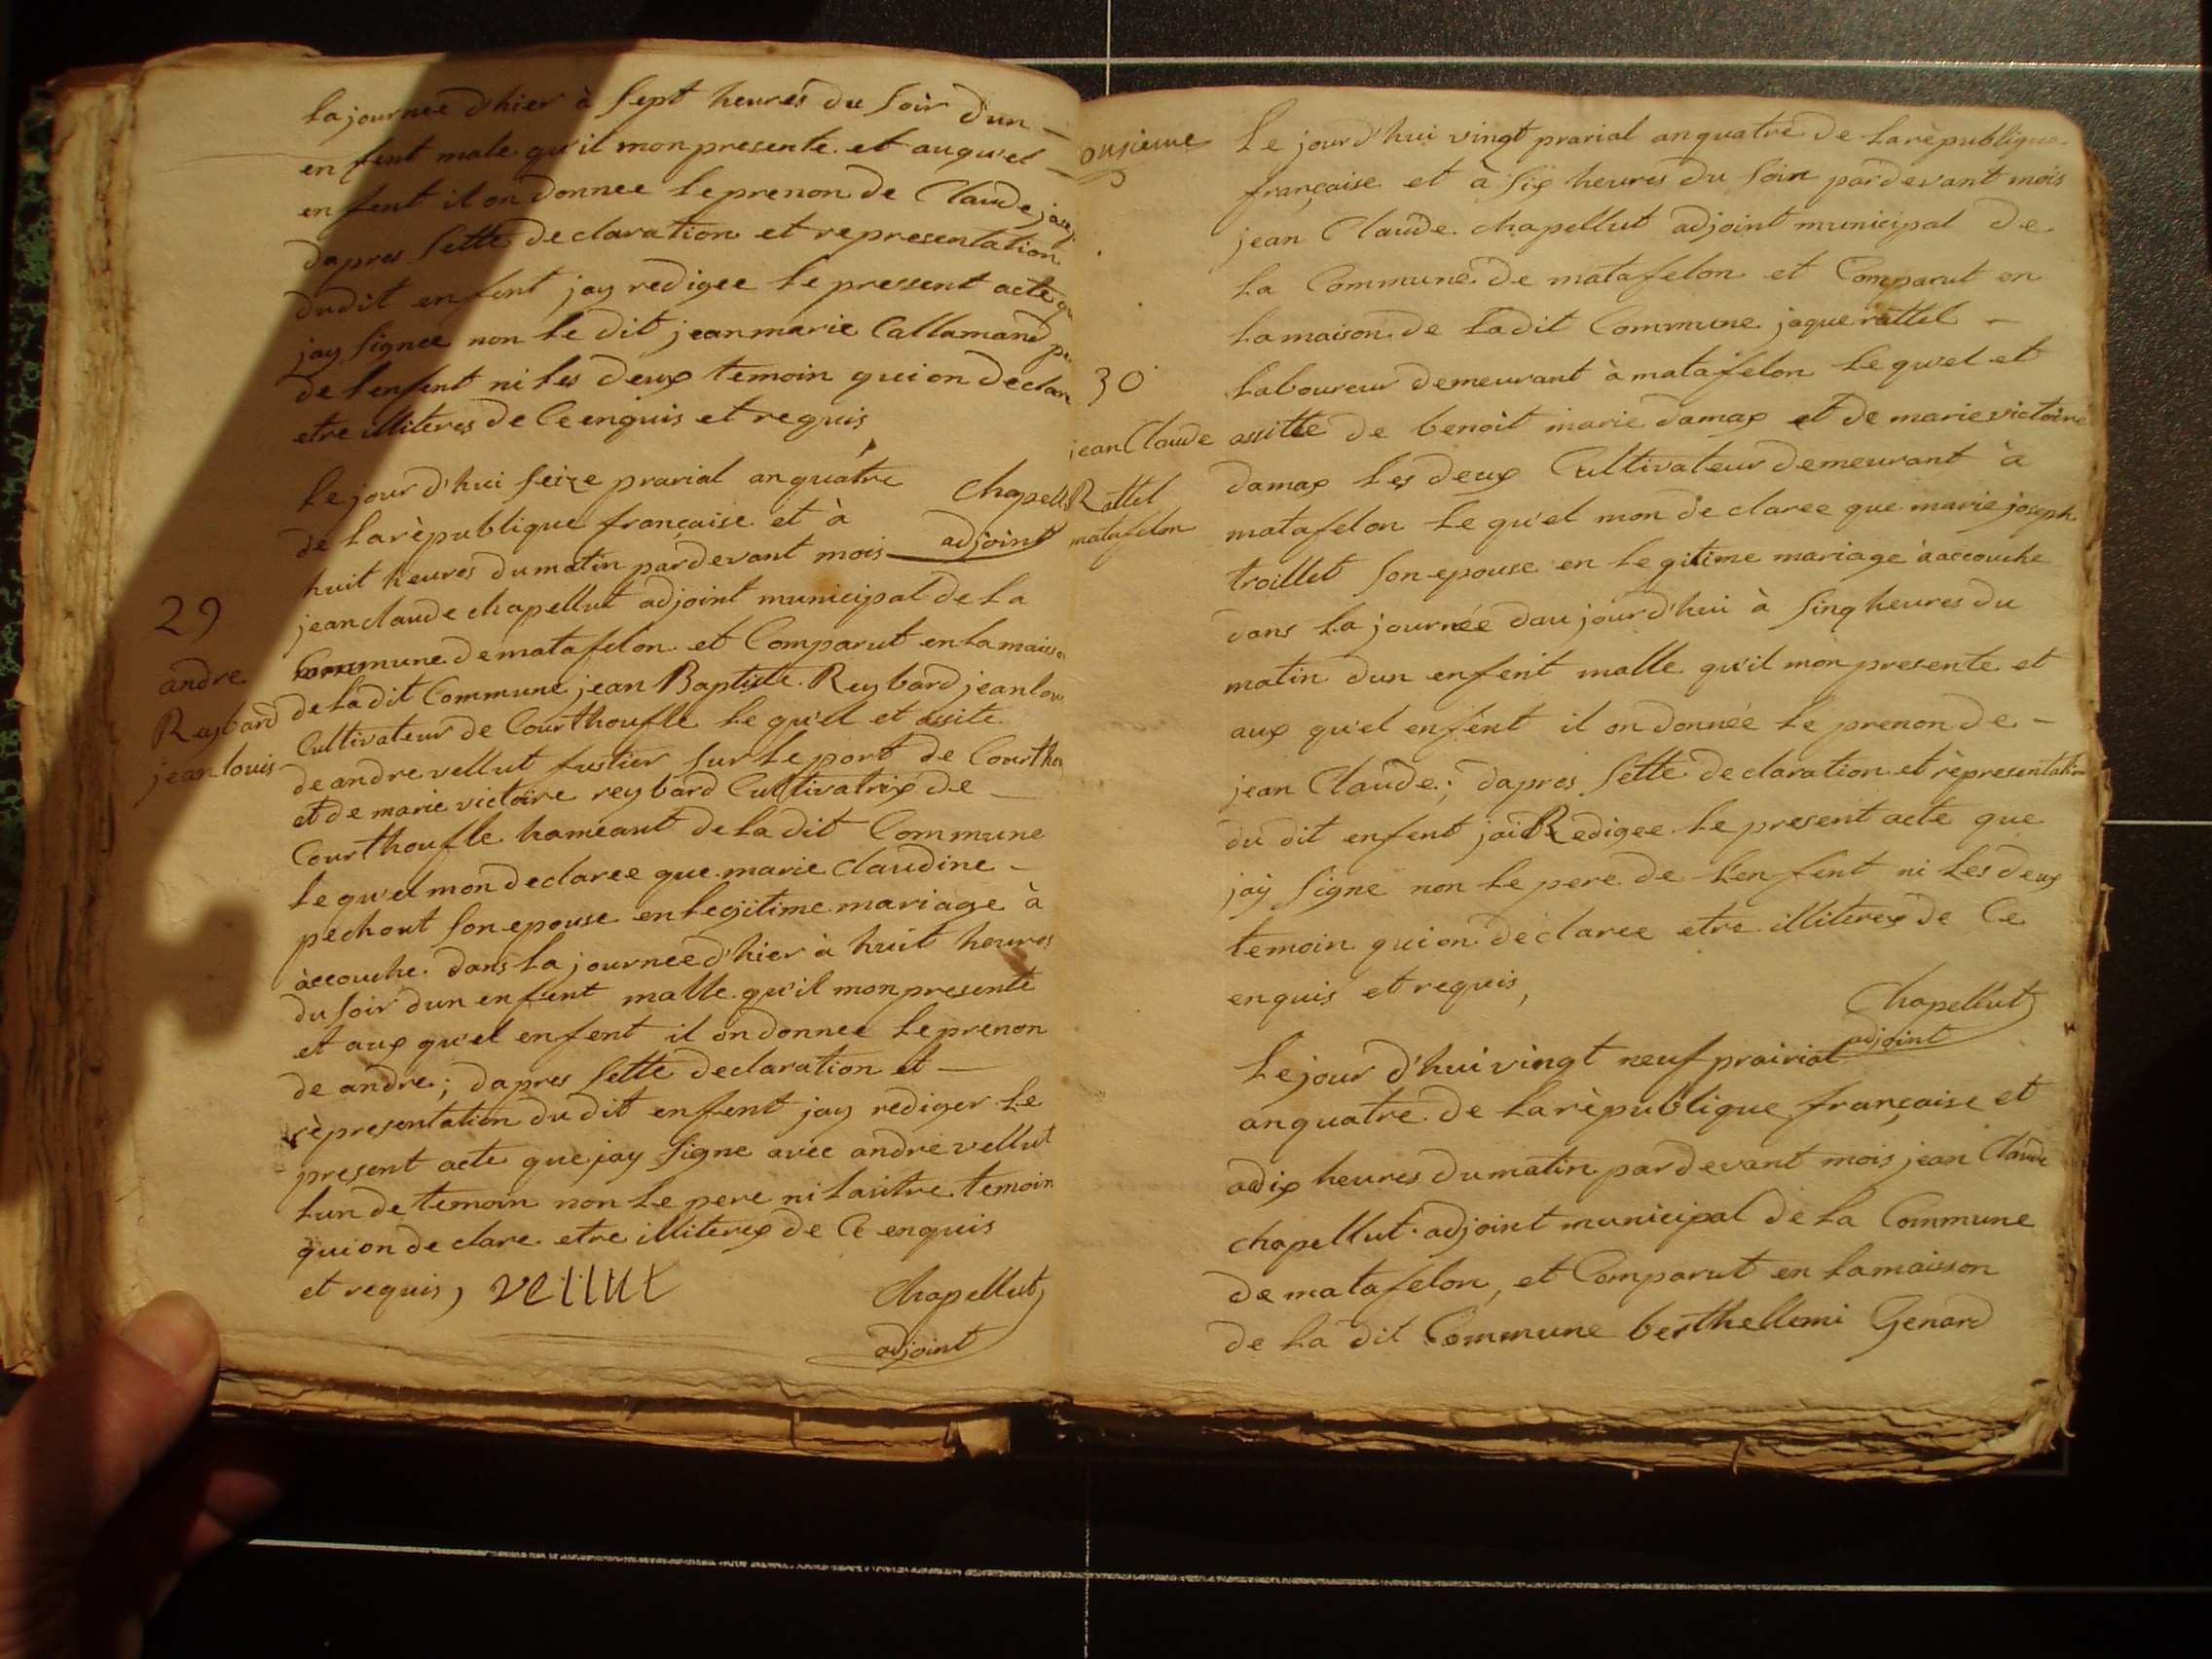 La journee d'hier à Sept heures du Soir dun
en fent male qu'il mon presente et auqu'el
en fent il on donnee Le prenon de Claude
dapres Sette declaration et representation
dudit enfent jay redigee Le pressent acte
jay Signee non Le dit jean marie Callamand
de Lenfent ni Les deux temoin qui on declare
etre illiteres de Ce enquis et requis
Chapell
adjoint
Le jour d'hui Seize prarial an quatre
de La rèpublique française et à
huit heures du matin pardevant mois
29
andre
Reybard
jean louis
jean claude chapellut adjoint municipal de La
Commune de matafelon et Comparut en La maison
de Ladit Commune jean Baptiste Reybard jean lou
Cultivateur de Courthoufle Le qu'el et assite
de andre vellut fustier Sur Le port de Courthou
et de marie victoire reybard Cultivatrix de
Courthoufle hameaut de La dit Commune
Le qu'el mon declaree que marie Claudine
pechout Son epouse en Legiitime mariage à
àccouche dans La journee d'hier à huit heures
du Soir dun enfent malle qu'il mon presente
et aux qu'el enfent il on donnee Le prenon
de andre; dapres Sette declaration et
rèpresentation du dit enfent jay rediger Le
present acte que jay Signe avec andre vellut
Lun de temoin non Le pere ni Lautre temoin
qui on declare etre illiterex de Ce enquis
et requis, vellut
Chapellut
adjoint
onzieme
Le jour d'hui vingt prarial an quatre de La rèpublique
française et à Six heures du Soir pardevant mois
jean Claude chapellut adjoint municipal de
La Commune de matafelon et Comparut en
La maison de Ladit Commune jaque rattel
30
jean Claude
Rattel
matafelon
Laboureur demeurant à matafelon Le qu'el et
assitte de benoit marie damax et de marie victoire
damax Les deux Cultivateur demeurant à
matafelon Le qu'el mon declaree que marie joseph
troillet Son epouse en Legitime mariage à accouche
dans La journée daujourd'hui à Sinq heures du
matin dun enfent malle qu'il mon presente et
aux qu'el enfent il on donnée Le prenon de
jean Claude; dapres Sette declaration et rèpresentation
du dit enfent jai Redigee Le present acte que
jay Signe non Le pere de Lenfent ni Les deux
temoin qui on declaree etre illiterex de Ce
enquis et requis,
Chapellut
adjoint
Le jour d'hui vingt neuf prairial
an quatre de La rèpublique française et
a dix heures du matin pardevant mois jean Claude
chapellut adjoint municipal de La Commune
de matafelon, et Comparut en La maison
de La dit Commune berthellemi Genard